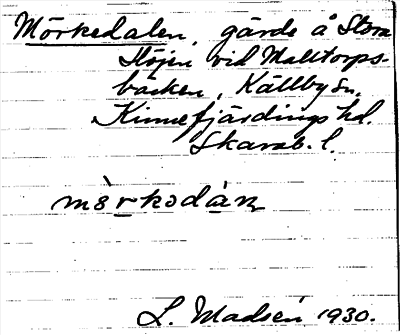 Mörkedalen, gärde å Stora
Höjen vid Malltorps-
bäcken, Källby sn,
Kinnefjärdings hd.
Skarab. l.
mə̀rkədàn
L. Madsén 1930.